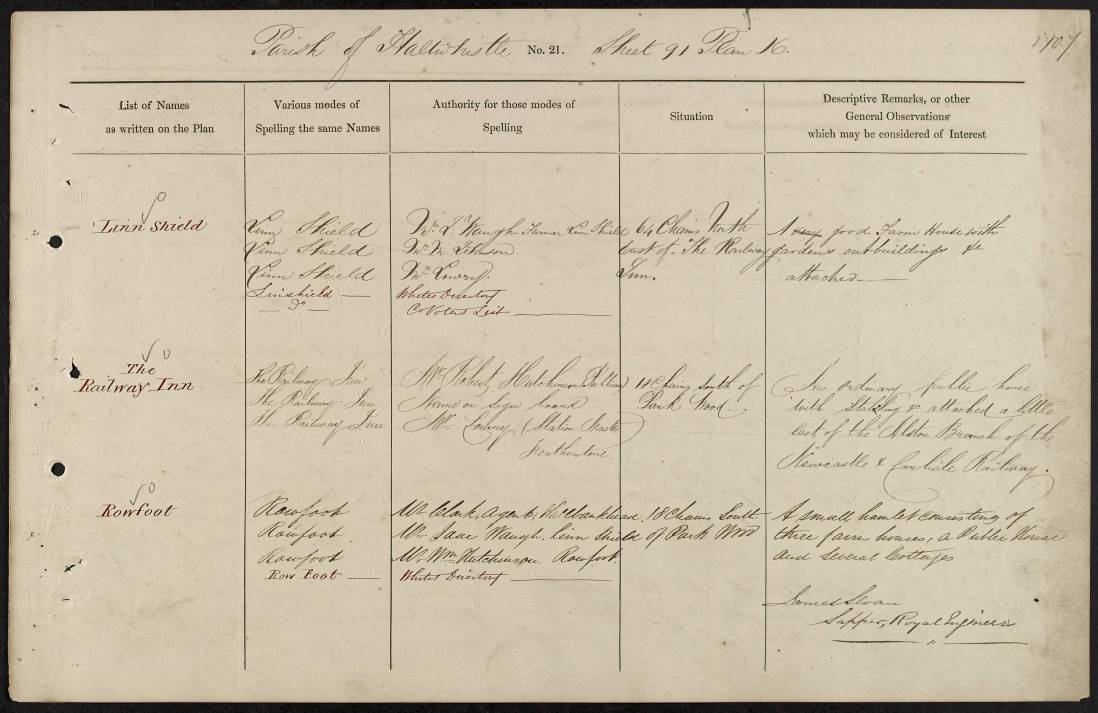 Parish of Haltwhistle No. 21. Sheet 91 Plan 16.
List of Names
as written on the Plan
Various modes of
Spelling the same Names
Authority for those modes of
Spelling
Situation
Descriptive Remarks, or other
General Observations
which may be considered of Interest
Linn Shield
Linn Shield
Linn Shield
Linn Shield
Linshield
Do
Mr. Waugh Farmer Linn Shield
Mr. M. Johnson
Mr. Lowry.
Whites Directory
Co Voters List
64 Chains North
East of The Railway
Inn.
A very good Farm House with
gardens outbuildings &c
attached
The
Railway Inn
The Railway Inn
The Railway Inn
The Railway Inn
Mr. Robert Hutchinson
Name on sign board
Mr. Lowry (Station Master)
Featherstone
18 Chains South of
Park Wood.
An ordinary public house
with Stabling & attached a little
east of the Alston Branch of the
Newcastle & Carlisle Railway.
Rowfoot
Rowfoot
Rowfoot
Rowfoot
Row Foot
Mr. Clark, Agent,
Mr. Isaac Waugh, Linn Shield
Mr. Wm. Hutchinson. Rowfoot.
Whites Directory
18 Chains South
of Park Wood
A small hamlet consisting of
three farm houses, a Public House
and Several Cottages
James Sloan
Sapper, Royal Engineers